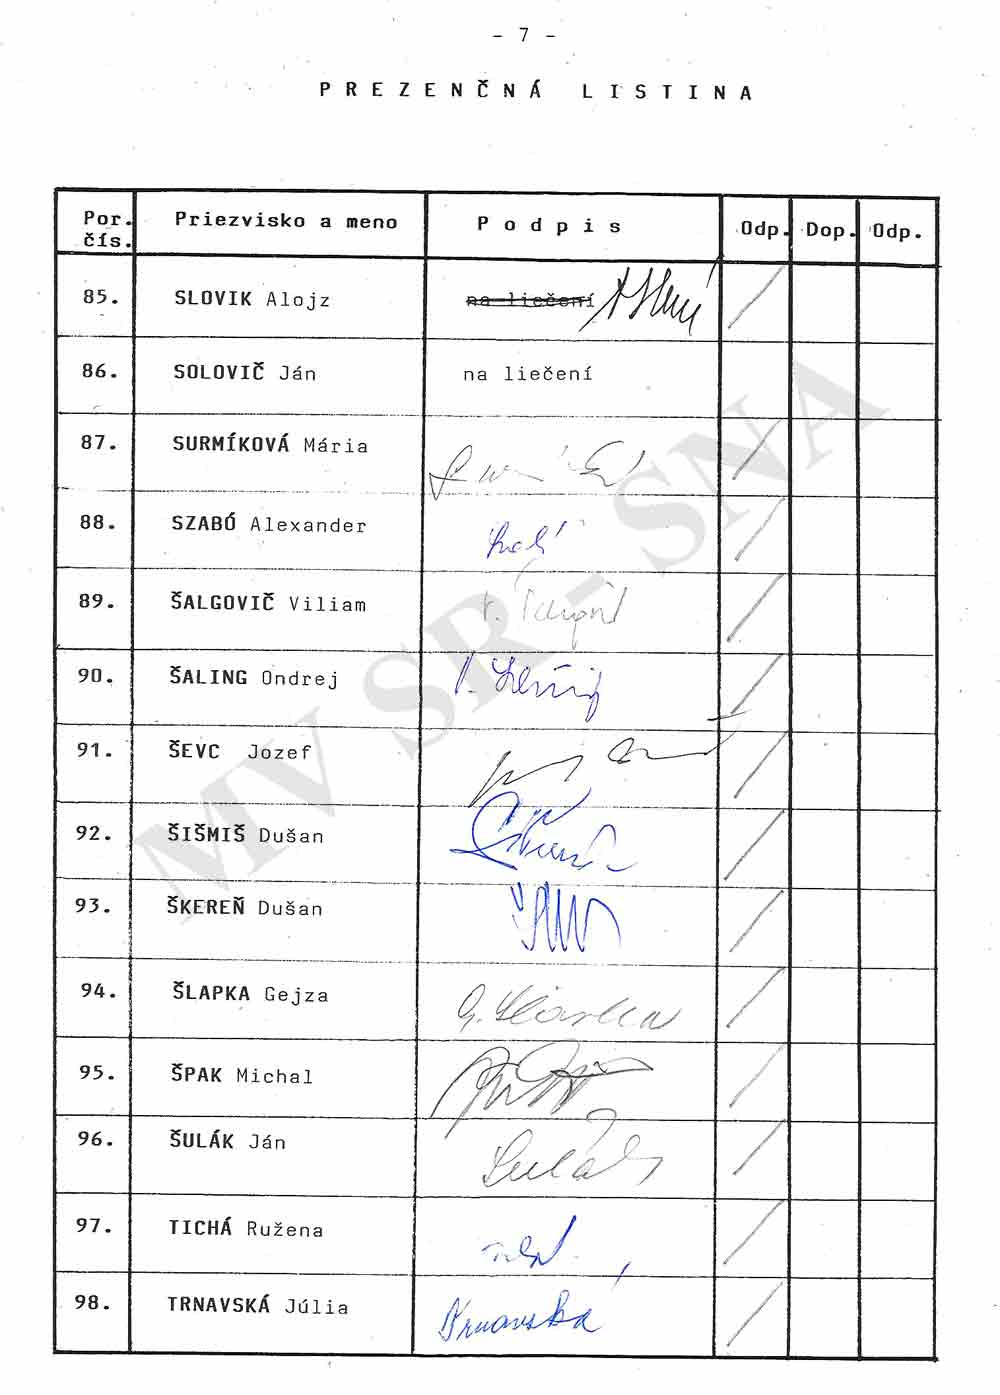 - 7 -
PREZENČNÁ LISTINA
Por. čís. Priezvisko a meno Podpis Odp. Dop. Odp.
85. SLOVIK Alojz na liečení
86. SOLOVIČ Ján na liečení
87. SURMÍKOVÁ Mária
88. SZABÓ Alexander
89. ŠALGOVIČ Viliam
90. ŠALING Ondrej
91. ŠEVC Jozef
92. ŠIŠMIŠ Dušan
93. ŠKEREŇ Dušan
94. ŠLAPKA Gejza
95. ŠPAK Michal
96. ŠULÁK Ján Šulák
97. TICHÁ Ružena
98. TRNAVSKÁ Júlia Trnavská
MV SR - SNA